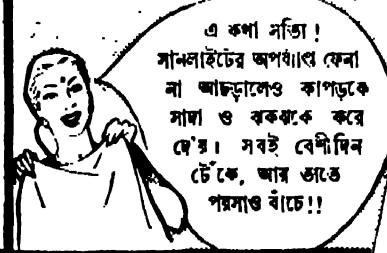 এ কথা সত্যি !
সানলাইটের অপর্য্যাপ্ত ফেনা
না আছড়ালেও কাপড়কে
সাদা ও ঝকঝকে করে
দে'য়। সবই বেশীদিন
টেঁকে, আর তাতে
পয়সাও বাঁচে !!